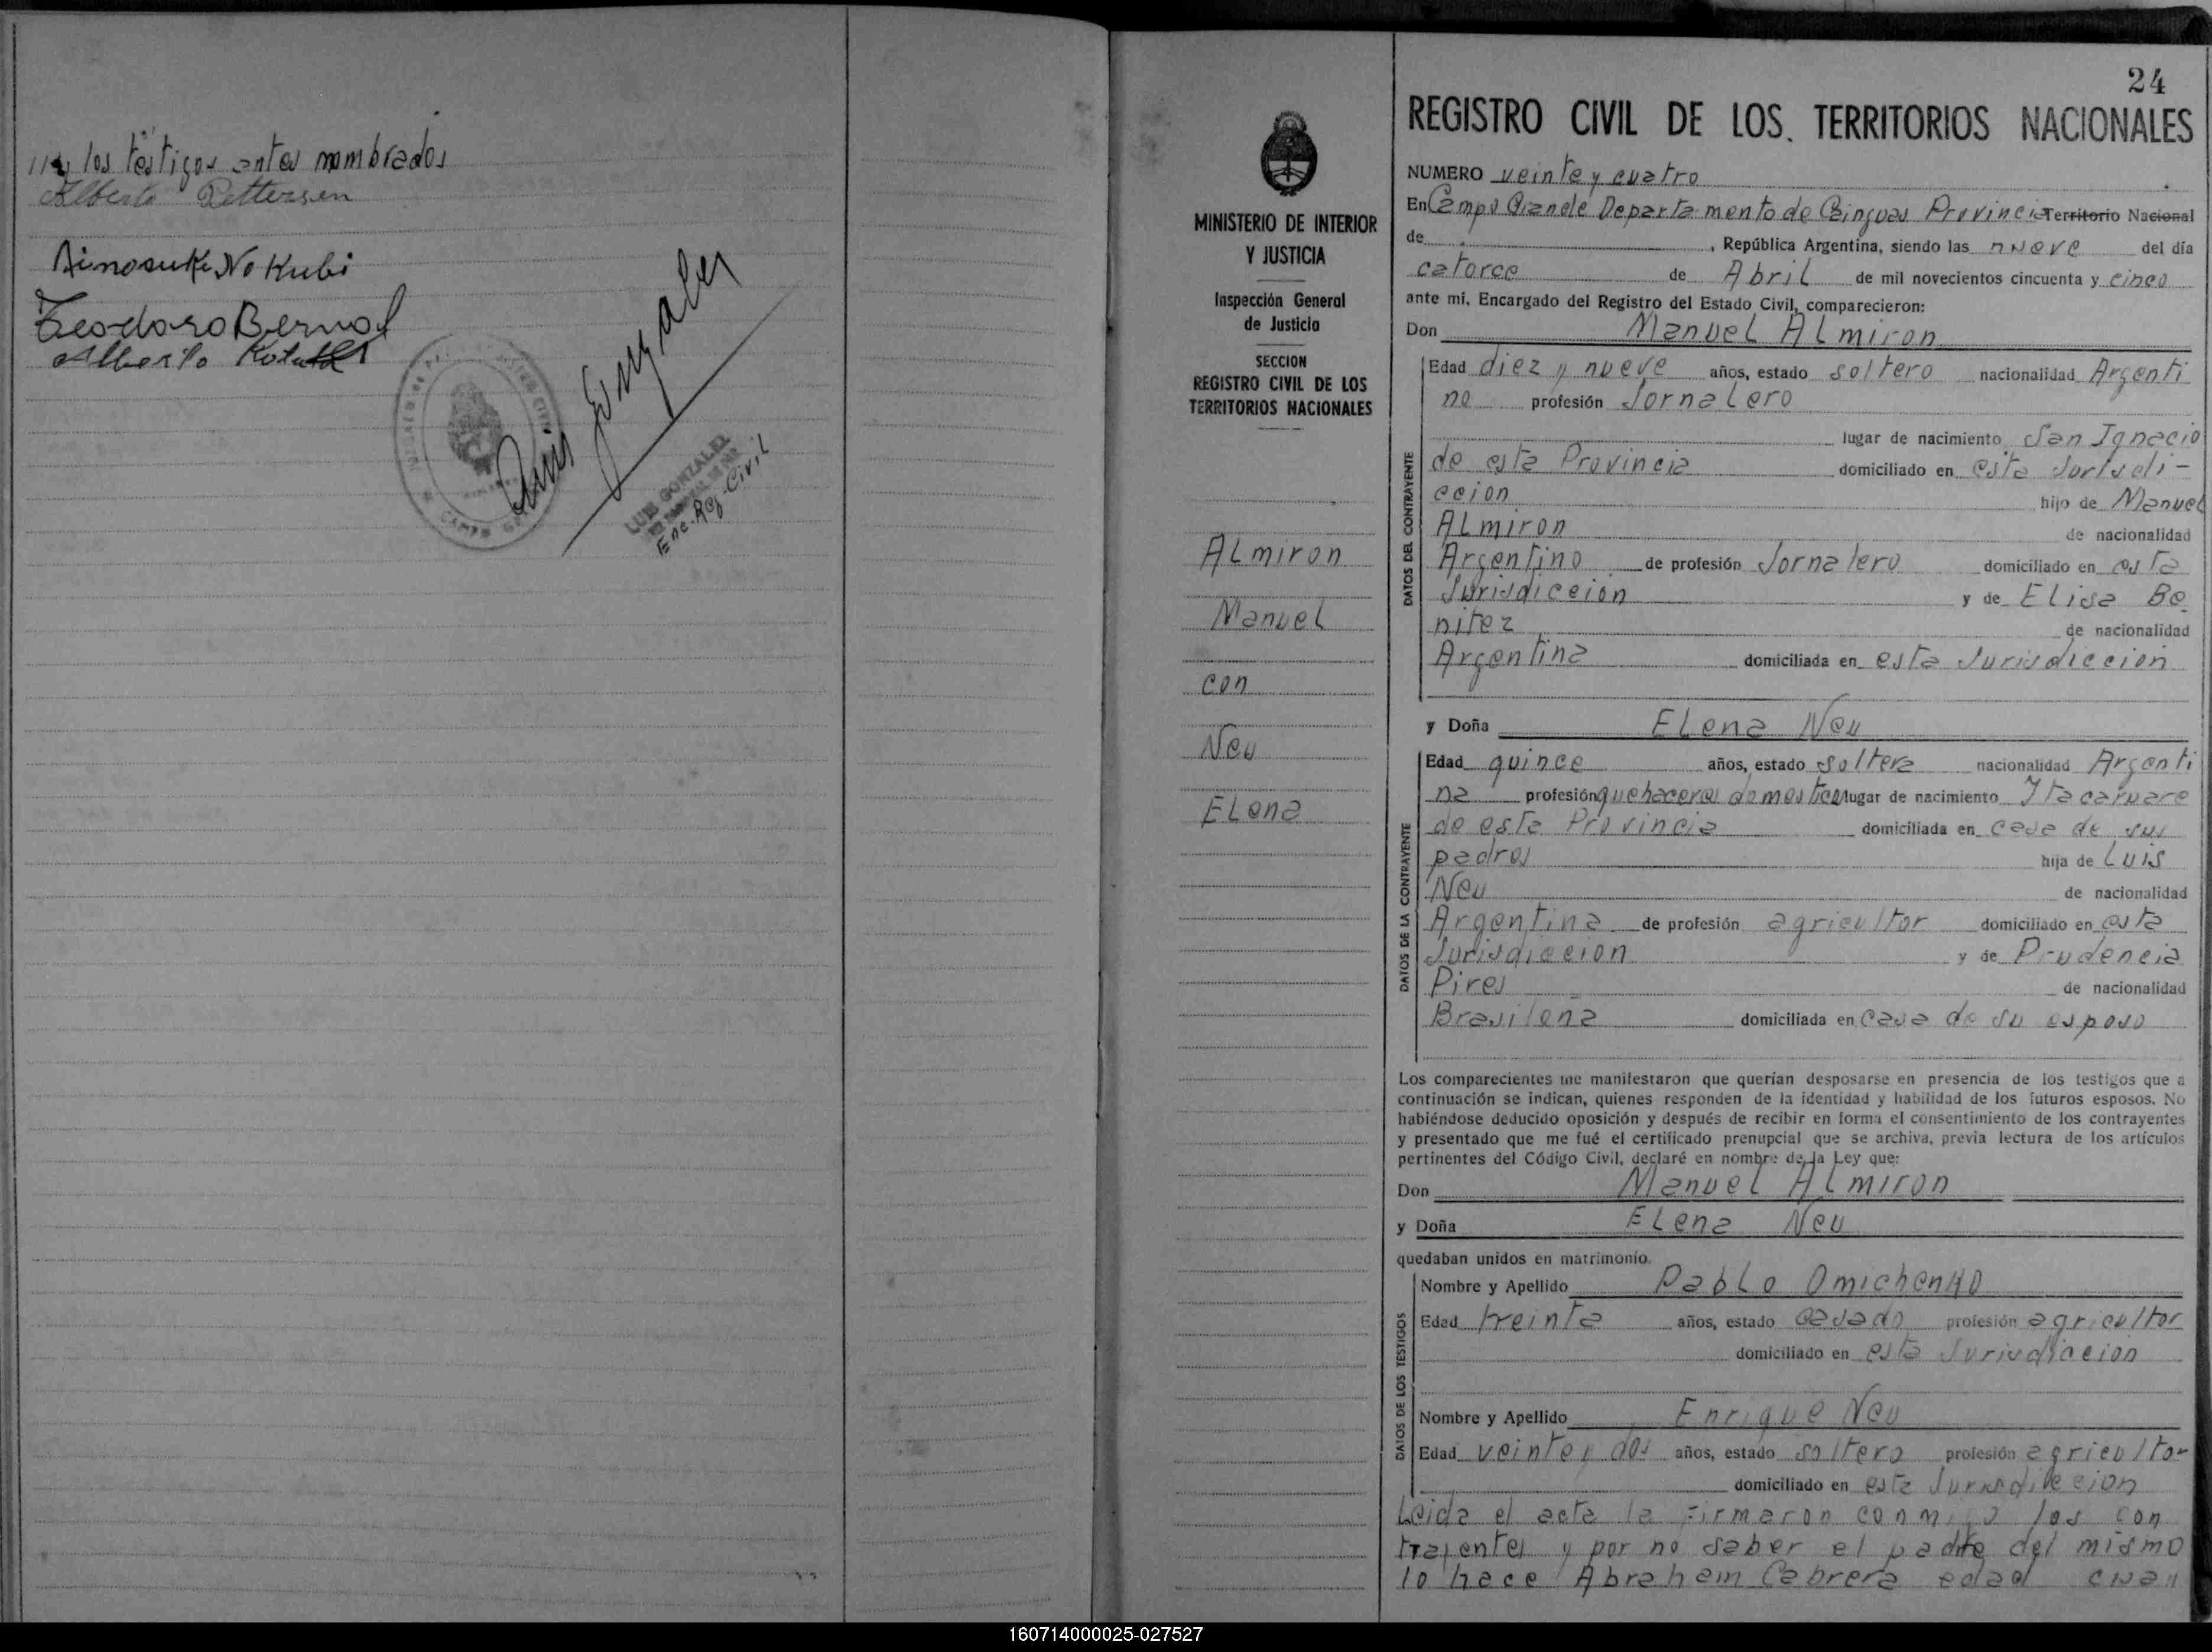 ///y los testigos antes nombrados
Alberto Pettersen
Teodoro Bernal
Alberto
Luis Gonzalez
LUIS GONZALEZ
Enc. Reg. Civil
MINISTERIO DE INTERIOR
Y JUSTICIA
Inspección General
de Justicia
SECCION
REGISTRO CIVIL DE LOS
TERRITORIOS NACIONALES
ALmiron
Manuel
con
Neu
ELena
24
REGISTRO CIVIL DE LOS TERRITORIOS NACIONALES
NUMERO veinte y cuatro
En Campo Grande Departamento de Cainguas Provincia Territorio Nacional
de , República Argentina, siendo las nueve del día
catorce de Abril de mil novecientos cincuenta y cinco
ante mí, Encargado del Registro del Estado Civil, comparecieron:
Don Manuel ALmiron
DATOS DEL CONTRAYENTE
Edad diez y nueve años, estado soltero nacionalidad Argenti
no profesión Jornalero
lugar de nacimiento San Ignacio
de esta Provincia domiciliado en esta Jurisdi-
ccion hijo de Manuel
ALmiron de nacionalidad
Argentino de profesión Jornalero domiciliado en esta
Jurisdiccion y de Elisa Be
nitez de nacionalidad
Argentina domiciliada en esta Jurisdiccion
y Doña ELena Neu
DATOS DE LA CONTRAYENTE
Edad quince años, estado soltera nacionalidad Argenti
na profesión quehaceres domesticos lugar de nacimiento Itacaruare
de esta Provincia domiciliada en casa de sus
padres hija de Luis
Neu de nacionalidad
Argentina de profesión agricultor domiciliado en esta
Jurisdiccion y de Prudencia
Pires de nacionalidad
Brasileña domiciliada en casa de su esposo
Los comparecientes me manifestaron que querían desposarse en presencia de los testigos que a
continuación se indican, quienes responden de la identidad y habilidad de los futuros esposos. No
habiéndose deducido oposición y después de recibir en forma el consentimiento de los contrayentes
y presentado que me fué el certificado prenupcial que se archiva, previa lectura de los artículos
pertinentes del Código Civil, declaré en nombre de la Ley que:
Don Manuel ALmiron
y Doña ELena Neu
quedaban unidos en matrimonio.
DATOS DE LOS TESTIGOS
Nombre y Apellido Pablo Omichenko
Edad treinta años, estado casado profesión agricultor
domiciliado en esta Jurisdiccion
Nombre y Apellido Enrique Neu
Edad veinte y dos años, estado soltero profesión agricultor
domiciliado en esta Jurisdiccion
Leida el acta la firmaron conmigo los con
trayentes y por no saber el padre del mismo
lo hace Abraham Cabrera edad cuan
160714000025-027527